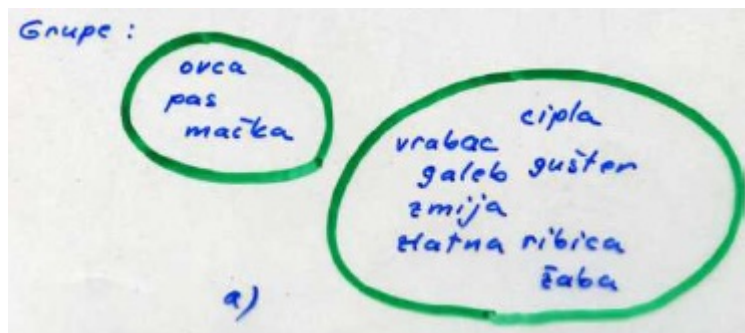 Grupe:
ovca
pas
mačka
cipla
vrabac
galeb gušter
zmija
zlatna ribica
žaba
a)